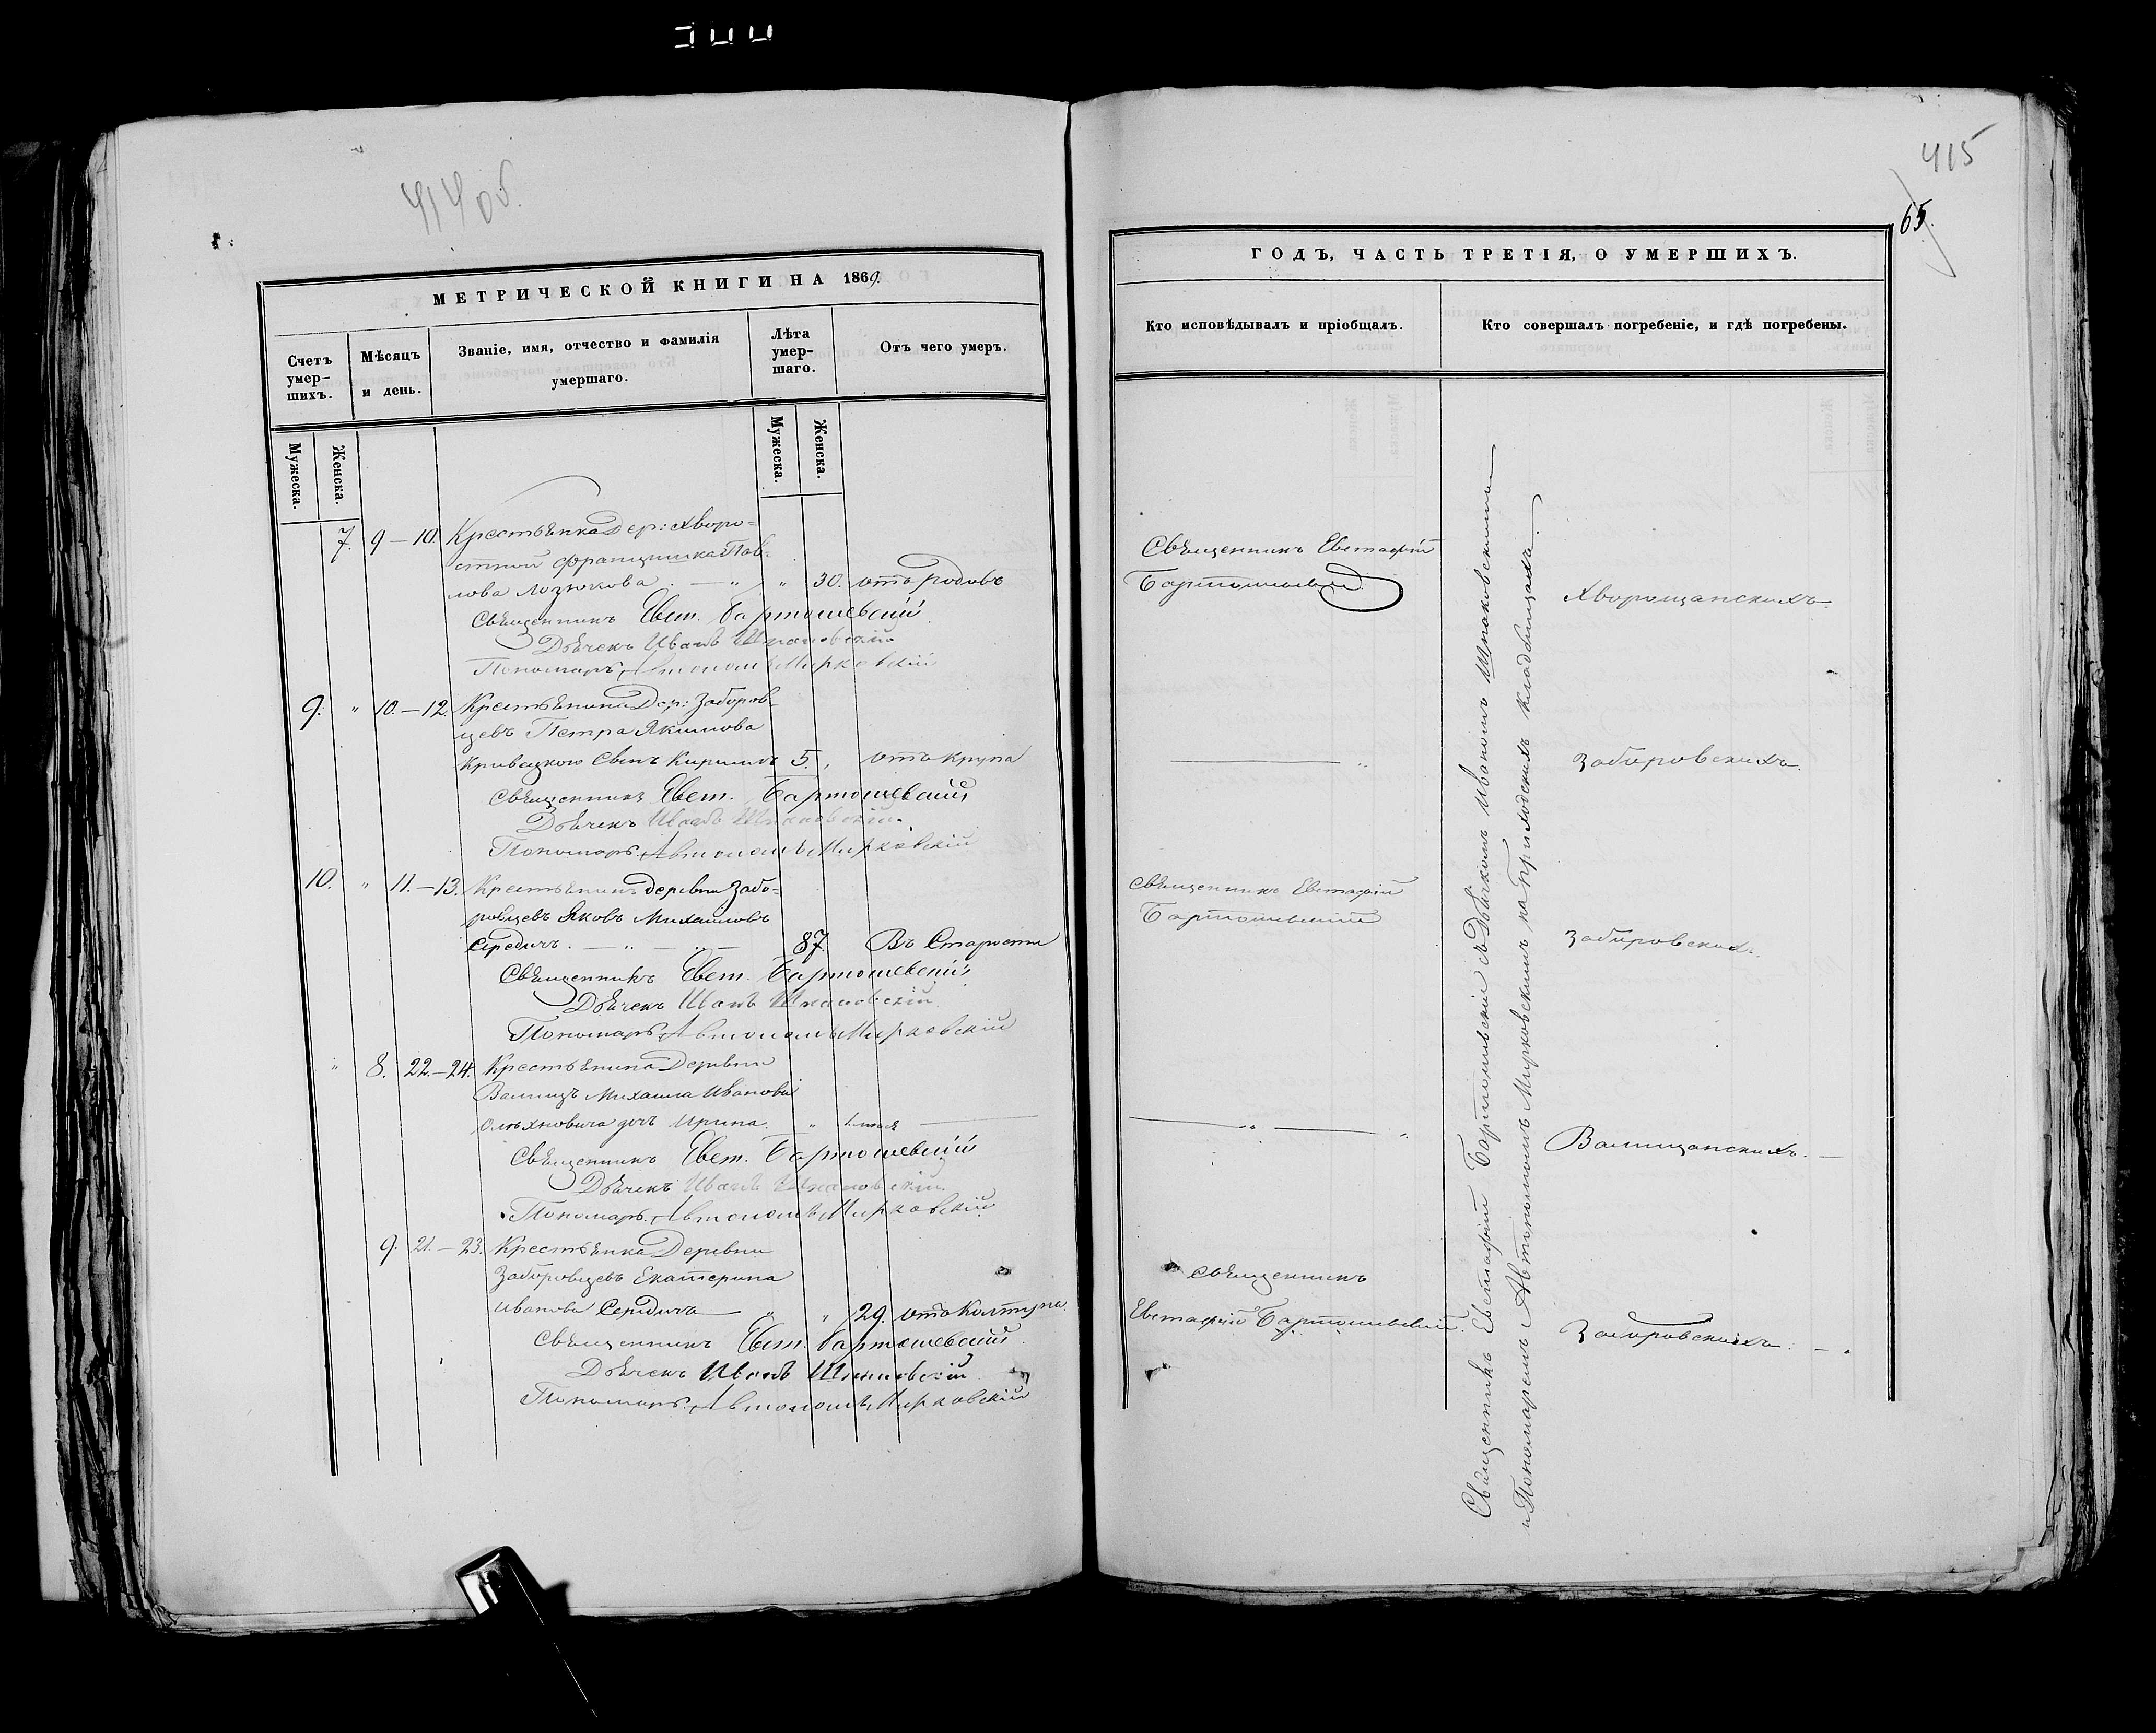 414 об.
МЕТРИЧЕСКОЙ КНИГИ НА 1869.
Счетъ умер-шихъ.
Мѣсяцъ и день.
Званіе, имя, отчество и фамилія умершаго.
Лѣта умер-шаго.
Отъ чего умеръ.
Мужеска.
Женска.
Мужеска.
Женска.
7. 9 — 10. Крестьянка Дер: Хворо=
стной Францишка Пав-
лова Лозюкова. — „ „ 30. отъ родовъ
Священникъ Евст. Бартошевскій
Дьячекъ Иванъ Шпаковскій
Пономарь Автономъ Мирковскій
9. „ 10. — 12. Крестьянина Дер: Заборов-
цевъ Петра Якимова
Кривецкого Сынъ Кириллъ 5. „ отъ крупа
Священникъ Евст. Бартошевскій
Дьячекъ Иванъ Шпаковскій
Пономарь Автономъ Мирковскій
10. „ 11. — 13. Крестьянинъ деревни Забо-
ровцевъ Яковъ Михаиловъ
Середичъ. — „ — „ — 87. Въ Старости
Священникъ Евст. Бартошевскій
Дьячекъ Иванъ Шпаковскій
Пономарь Автономъ Мирковскій
„ 8. 22. — 24. Крестьянина Деревни
Валищъ Михаила Иванова
Олѣхновича дочь Ирина. „
Священникъ Евст. Бартошевскій
Дьячекъ Иванъ Шпаковскій
Пономарь Автономъ Мирковскій
9. 21. — 23. Крестьянка Деревни
Заборовцевъ Екатерина
Иванова Середича — „ „ 29. отъ Колтуна.
Священникъ Евст. Бартошевскій
Дьячекъ Иванъ Шпаковскій
Пономарь Автономъ Мирковскій
415
65.
ГОДЪ, ЧАСТЬ ТРЕТІЯ, О УМЕРШИХЪ.
Кто исповѣдывалъ и пріобщалъ.
Кто совершалъ погребеніе, и гдѣ погребены.
Священникъ Евстафій
Бартошевскій
Хворощанскихъ
Заборовскихъ.
Священникъ Евстафій
Бартошевскій
Заборовскихъ.
Валищанскихъ. —
Священникъ
Евстафій Бартошевскій.
Заборовскихъ. —
Священникъ Евстафій Бартошевскій съ Дьячкомъ Иваномъ Шпаковскимъ
и Пономаремъ Автономомъ Мирковскимъ на Приходскихъ кладбищахъ.